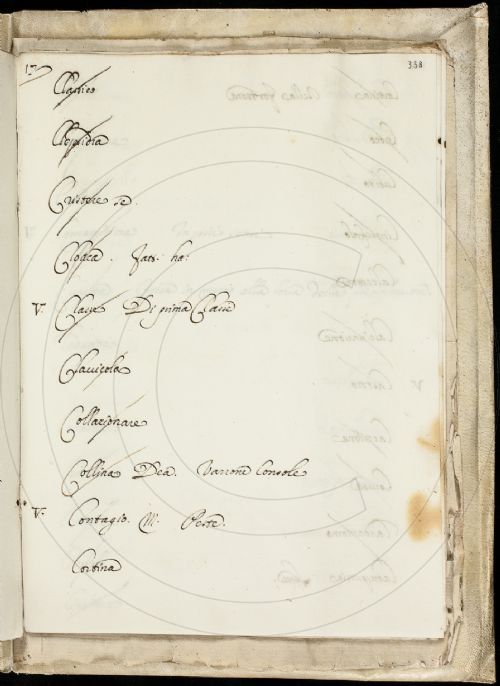 17 358
Classico
Clepsidra
Cloaca. Fatt: ha:
V: Classe Di prima Classe
Clavicola
Collazionare
Collina Dea. Varrone Console
V: Contagio. M. Peste.
Cortina